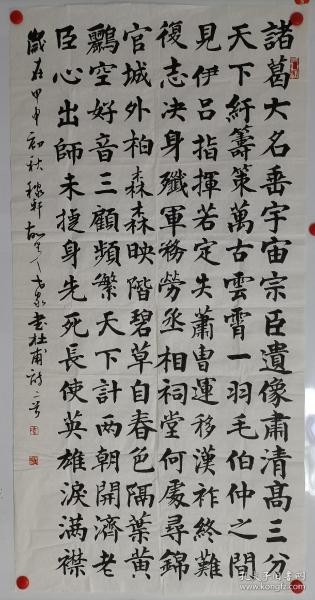 諸葛大名垂宇宙宗臣遺像肅清高三分
天下紆籌策萬古雲霄一羽毛伯仲之間
見伊呂指揮若定失蕭曹運移漢祚終難
復志決身殲軍務勞丞相祠堂何處尋錦
官城外柏森森映階碧草自春色隔葉黃
鸝空好音三顧頻繁天下計兩朝開濟老
臣心出師未捷身先死長使英雄淚满襟
歲在甲申初秋稼軒故里人書杜甫詩二首